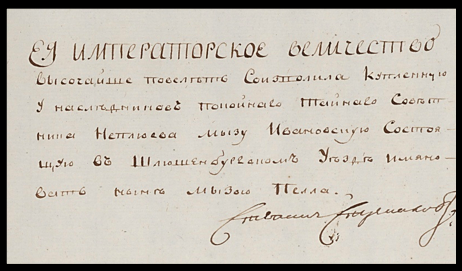 ЕЯ ИМПЕРАТОРСКОЕ ВЕЛИЧЕСТВО
высочайше повелѣть Соизволила Купленную
у наслѣдниковъ покойнаво Тайнаво Совѣт-
ника Неплюева мызу Ивановскую Состоя-
щую въ Шлюшенбургскомъ Уѣздѣ имяно-
вать нынѣ мызою Пелла.